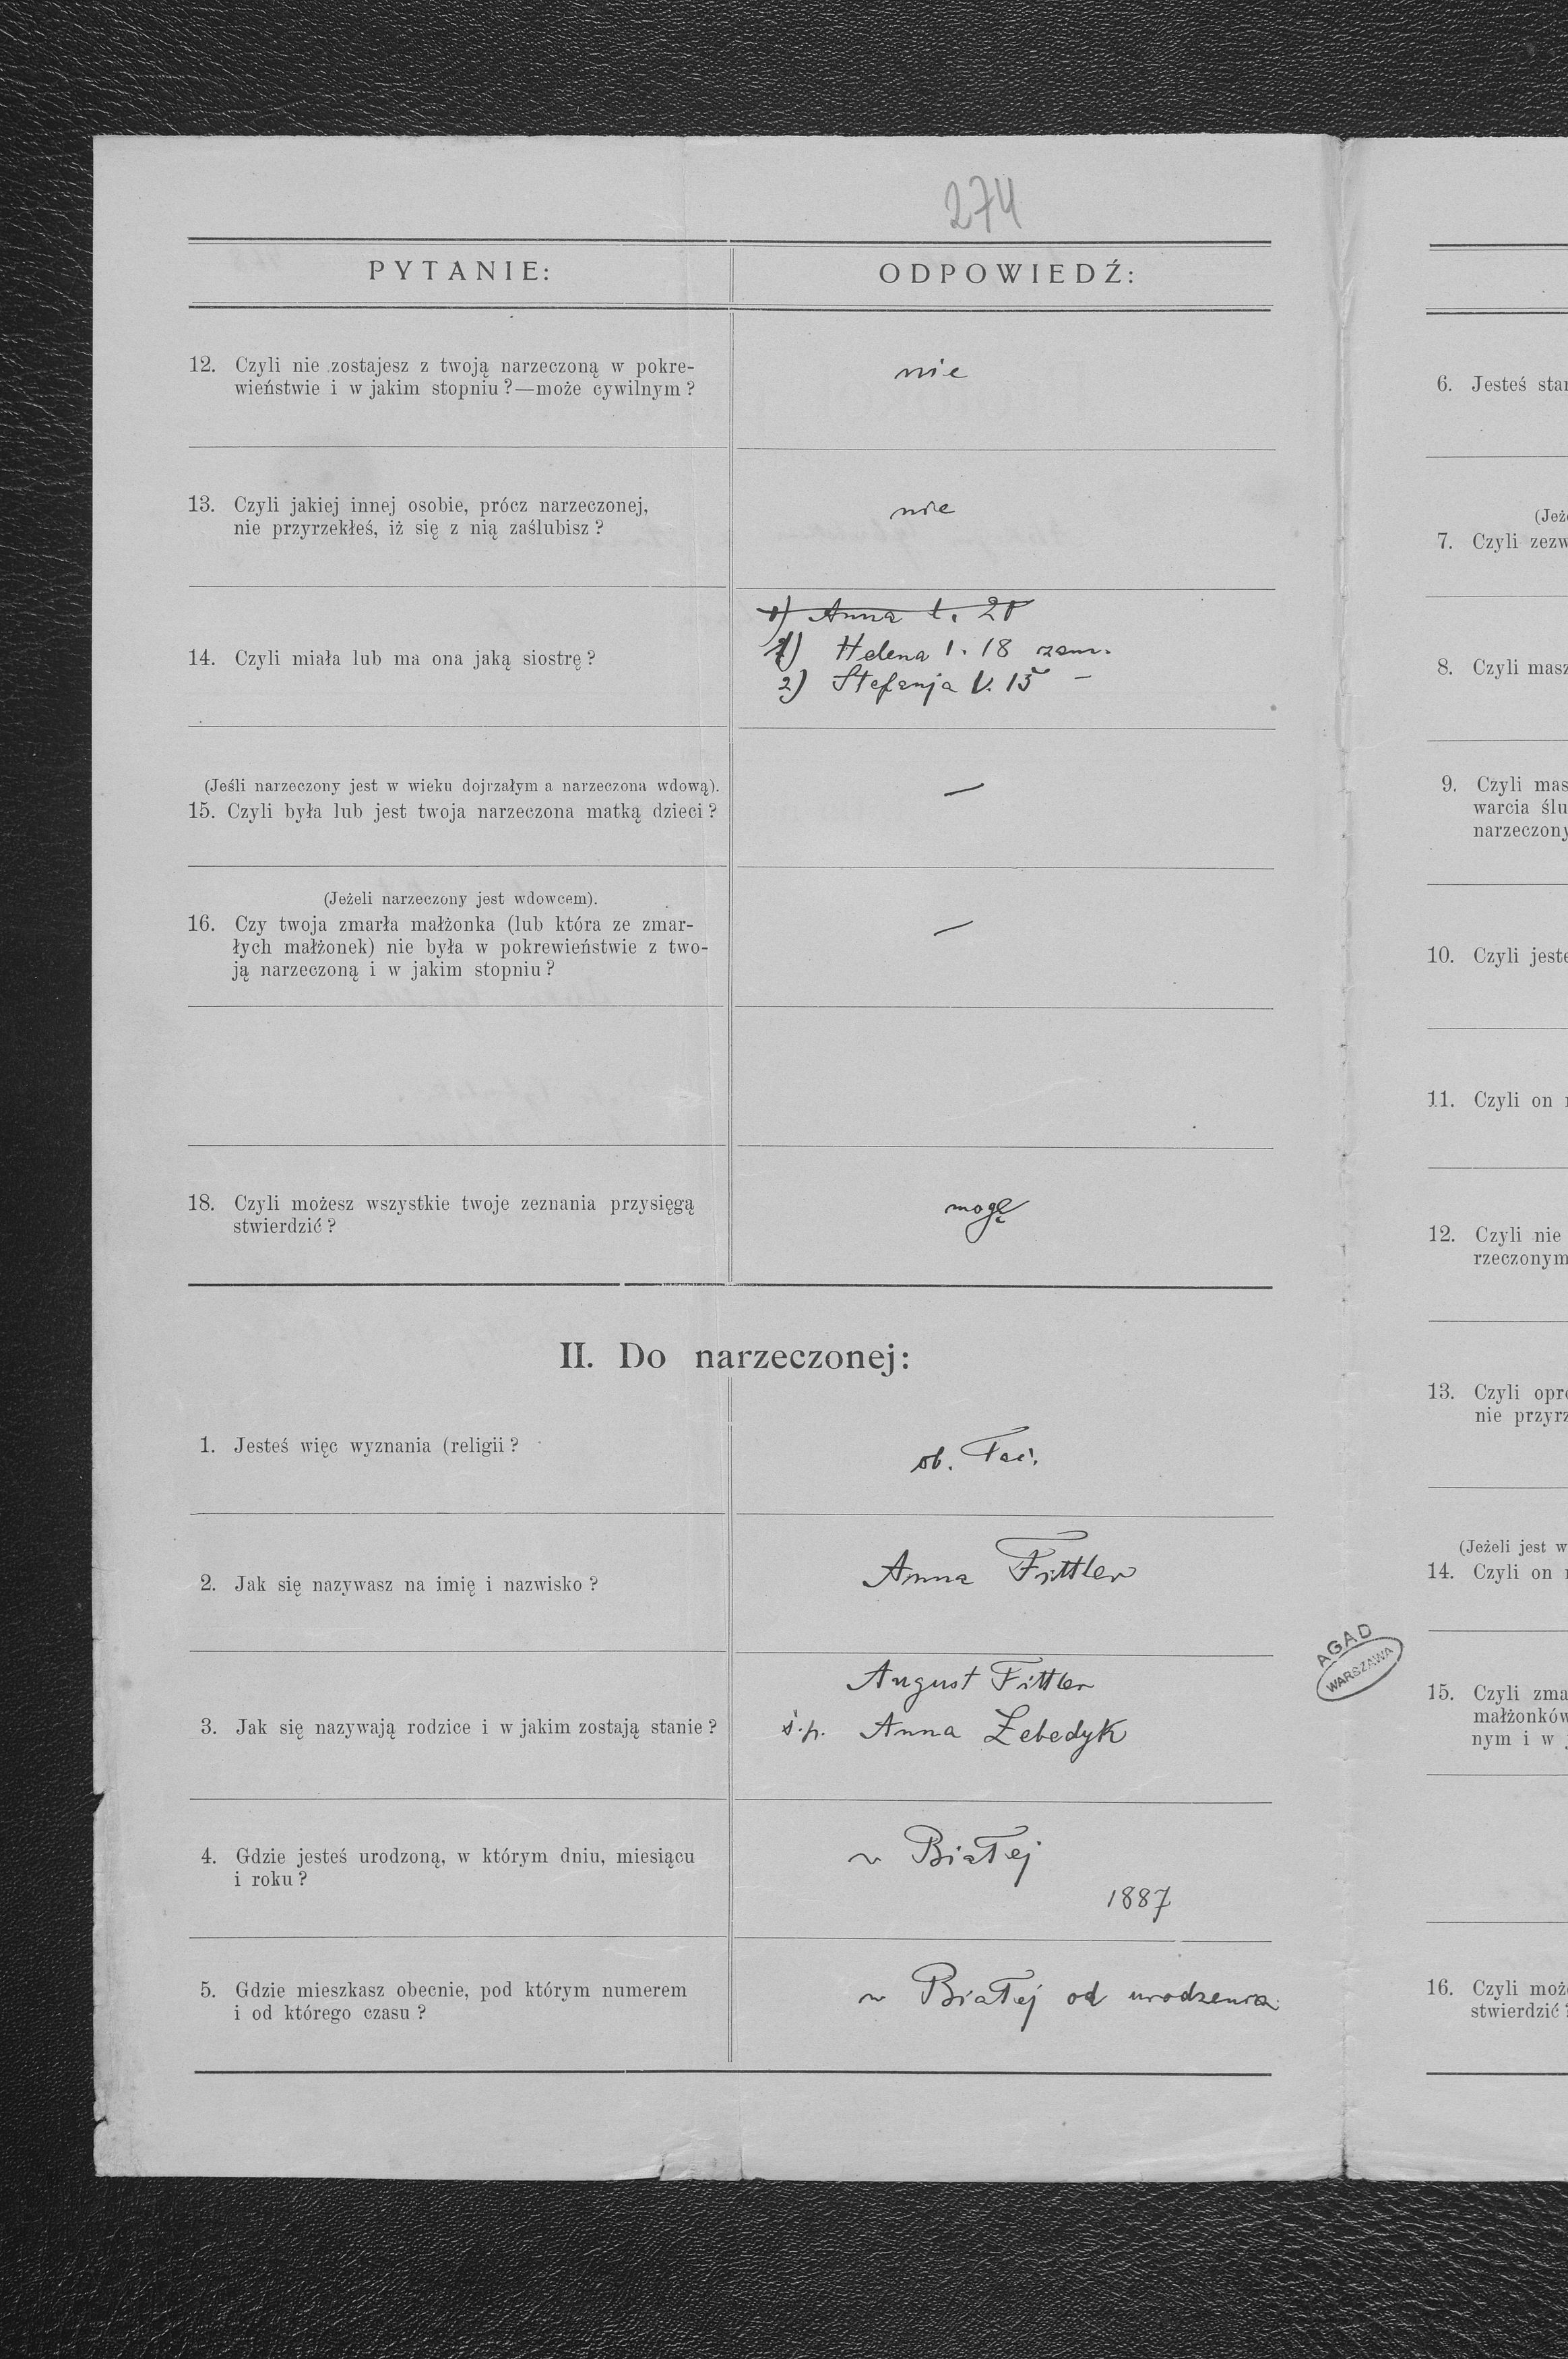 274
PYTANIE: ODPOWIEDŹ:
12. Czyli nie zostajesz z twoją narzeczoną w pokre-
wieństwie i w jakim stopniu?—może cywilnym?
nie
13. Czyli jakiej innej osobie, prócz narzeczonej,
nie przyrzekłeś, iż się z nią zaślubisz?
nie
14. Czyli miała lub ma ona jaką siostrę?
Anna l. 20
1) Helena l. 18 zam.
2) Stefanja l. 15 —
(Jeśli narzeczony jest w wieku dojrzałym a narzeczona wdową).
15. Czyli była lub jest twoja narzeczona matką dzieci?
—
(Jeżeli narzeczony jest wdowcem).
16. Czy twoja zmarła małżonka (lub która ze zmar-
łych małżonek) nie była w pokrewieństwie z two-
ją narzeczoną i w jakim stopniu?
—
18. Czyli możesz wszystkie twoje zeznania przysięgą
stwierdzić?
mogę
II. Do narzeczonej:
1. Jesteś więc wyznania (religii?
ob. łać.
2. Jak się nazywasz na imię i nazwisko?
Anna Fittler
3. Jak się nazywają rodzice i w jakim zostają stanie?
August Fittler
ś.p. Anna Lebedyk
4. Gdzie jesteś urodzoną, w którym dniu, miesiącu
i roku?
w Białej
1887
5. Gdzie mieszkasz obecnie, pod którym numerem
i od którego czasu?
w Białej od urodzenia
AGAD
WARSZAWA
6. Jesteś star
(Jeże
7. Czyli zezw
8. Czyli masz
9. Czyli mas
warcia ślu
narzeczony
10. Czyli jeste
11. Czyli on
12. Czyli nie
rzeczonym
13. Czyli opró
nie przyrz
(Jeżeli jest w
14. Czyli on
15. Czyli zma
małżonków
nym i w j
16. Czyli moż
stwierdzić?